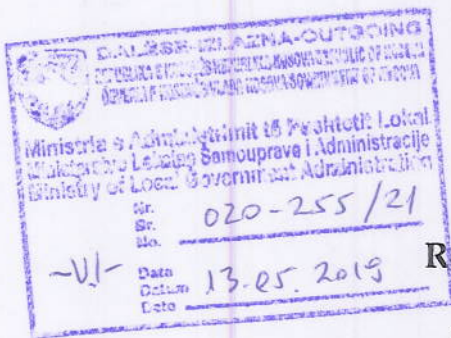 DALËSE-IZLAZNA-OUTGOING
Ministria e Administrimit të Pushtetit Lokal
Ministarstvo Lokalne Samouprave i Administracije
Ministry of Local Government Administration
Nr.
Br.
No.
020-255/21
-VI-
Data
Datum
Date
13.05.2019
R